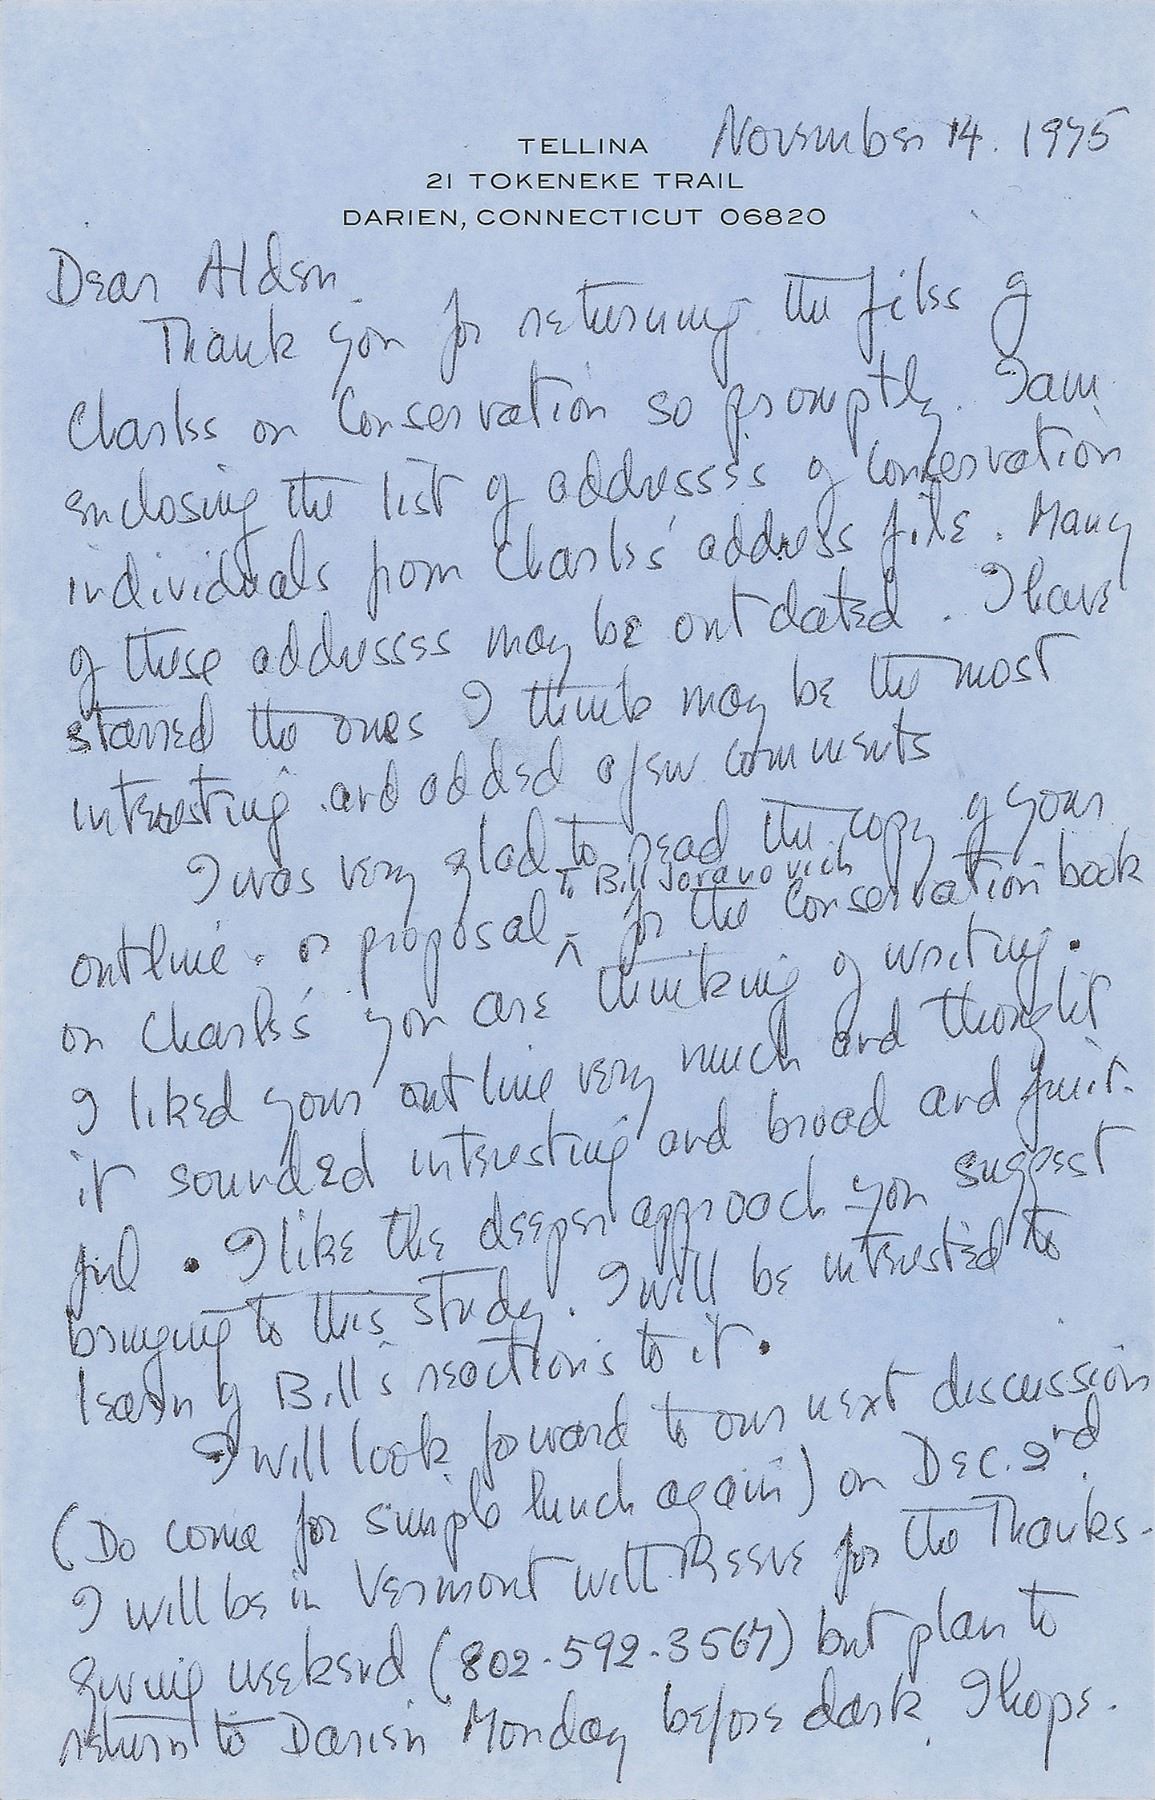 November 14. 1975
TELLINA
21 TOKENEKE TRAIL
DARIEN, CONNECTICUT 06820
Dear Alden.
Thank you for returning the files of
Charles on Conservation so promptly. I am
enclosing the list of addresses of conservation
individuals from Charles' address file. Many
of these addresses may be out dated. I have
starred the ones I think may be the most
interesting and added a few comments
I was very glad to read the copy of your
to Bill Jovanovich
outline. or proposal ^ for the Conservation book
on Charles' you are thinking of writing.
I liked your outline very much and thought
it sounded interesting and broad and fruit-
ful. I like the deeper approach you suggest
bringing to this study. I will be interested to
learn of Bill's reactions to it.
I will look forward to our next discussion
(Do come for simple lunch again) on Dec. 2nd.
I will be in Vermont with Reeve for the Thanks-
giving weekend (802-592-3567) but plan to
return to Darien Monday before dark I hope.